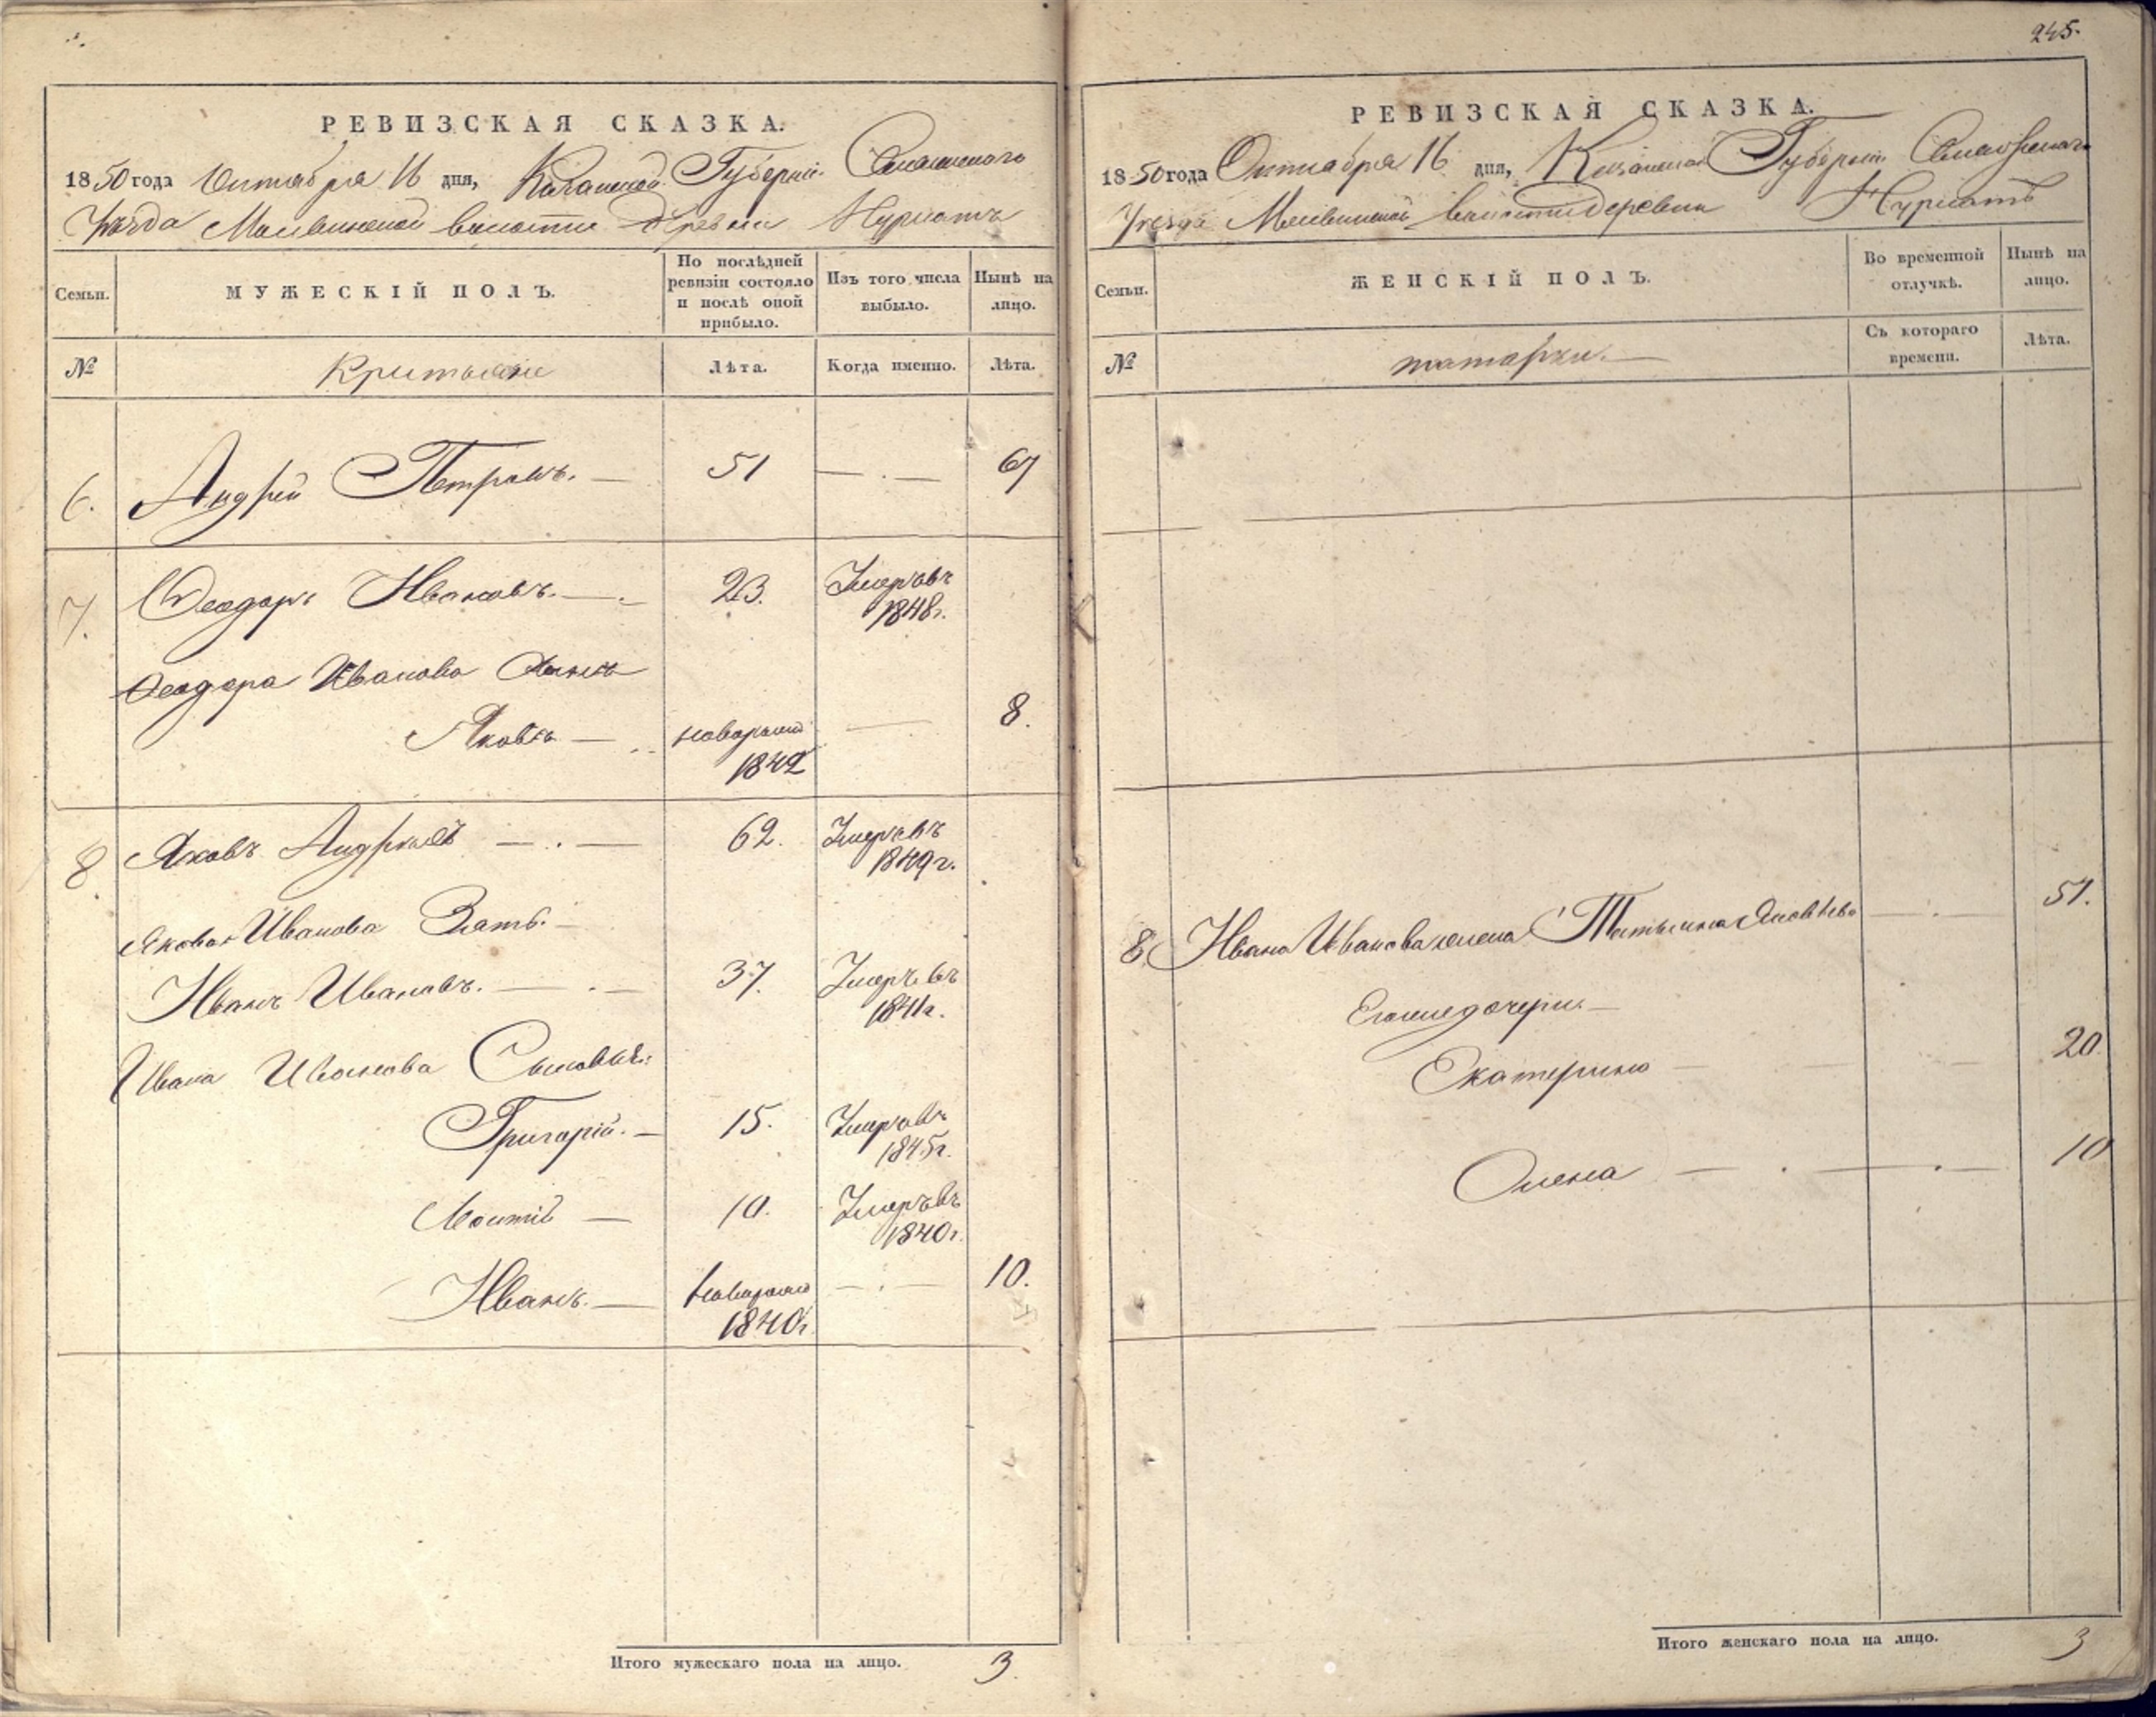 РЕВИЗСКАЯ СКАЗКА.
1850 года Октября 16 дня, Казанской Губерніи Спасскаго
Уѣзда волости деревни Нурлатъ
Семьи.
МУЖЕСКІЙ ПОЛЪ.
По послѣдней ревизіи состояло и послѣ оной прибыло.
Изъ того числа выбыло.
Нынѣ на лицо.
№
Лѣта.
Когда именно.
Лѣта.
6. Андрей Петровъ. — 51 — . — 67
7. Ѳеодоръ Ивановъ. — 23. Умеръ въ
1848г.
Ѳеодора Иванова сынъ
Яковъ — новорожд — 8.
1842
8. Яковъ Андреевъ — . — 62. Умеръ въ
1849г.
Якова Иванова Зять. —
Иванъ Ивановъ. — . — 37. Умеръ въ
1841г.
Ивана Иванова Сыновья:
Григорій. — 15. Умеръ въ
1845г.
— 10. Умеръ въ
1840г.
Иванъ. — новорожд — . — 10.
1840г.
Итого мужескаго пола на лицо. 3
245.
РЕВИЗСКАЯ СКАЗКА.
1850 года Октября 16 дня, Казанской Губерніи Спасскаго
Уѣзда волости деревни Нурлатъ
Семьи.
ЖЕНСКІЙ ПОЛЪ.
Во временной отлучкѣ.
Нынѣ на лицо.
№
татарки. —
Съ котораго времени.
Лѣта.
8 Ивана Иванова жена Татьяна Яковлева — . — 51.
Его же дочери. —
Екатерина — 20
Олена — . — . — 10
Итого женскаго пола на лицо. 3